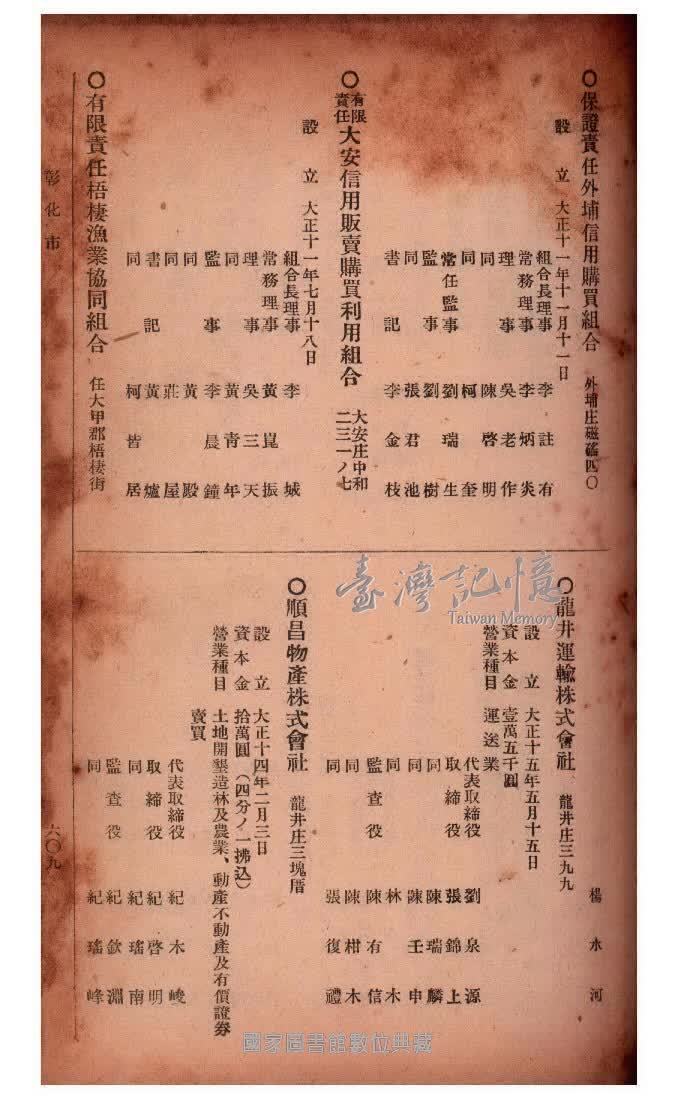 ○保證責任外埔信用購買組合 外埔庄磁磘四〇
設立 大正十一年十一月十一日
組合長理事 李註有
常務理事 李炳炎
理事 吳老作
同 陳啓明
同 柯奎
常任監事 劉瑞生
監事 劉樹
同 張君池
書記 李金枝
○有限責任大安信用販賣購買利用組合 大安庄中和二三一ノ七
設立 大正十一年七月十八日
組合長理事 李城
常務理事 黃崑振
理事 吳三天
同 黃靑年
監事 李晨鐘
同 黃殿
同 莊屋
書記 黃爐
同 柯皆居
○有限責任梧棲漁業協同組合 任大甲郡梧棲街
楊水河
○龍井運輸株式會社 龍井庄三九九
設立 大正十五年五月十五日
資本金 壹萬五千圓
營業種目 運送業
代表取締役 劉泉源
取締役 張錦上
同 陳瑞麟
同 陳壬申
同 林木
監査役 陳有信
同 陳柑木
同 張復禮
○順昌物產株式會社 龍井庄三塊厝
設立 大正十四年二月三日
資本金 拾萬圓(四分ノ一拂込)
營業種目 土地開墾造林及農業、動產不動產及有價證券
賣買
代表取締役 紀木峻
取締役 紀啓明
同 紀瑤南
監查役 紀欽淵
同 紀瑤峰
彰化市
六〇九
臺灣記憶
Taiwan Memory
國家圖書館數位典藏